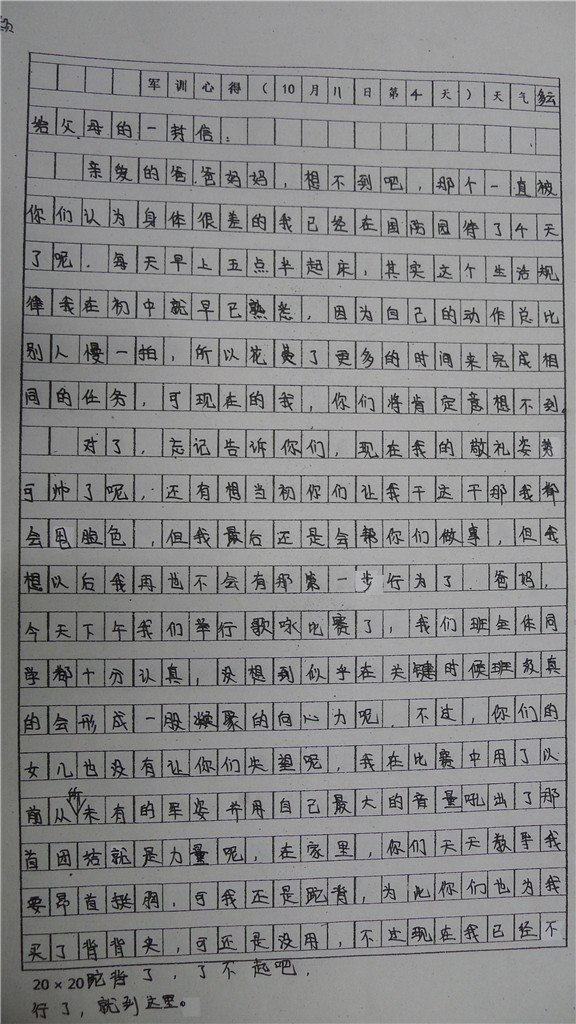 军训心得（10月11日第4天）天气多云
给父母的一封信：
亲爱的爸爸妈妈，想不到吧，那个一直被
你们认为身体很差的我已经在国防园待了4天
了呢．每天早上五点半起床，其实这个生活规
律我在初中就早已熟悉，因为自己的动作总比
别人慢一拍，所以花费了更多的时间来完成相
同的任务，可现在的我，你们将肯定意想不到．
对了，忘记告诉你们，现在我的敬礼姿势
可帅了呢，还有想当初你们让我干这干那我都
会甩脸色，但我最后还是会帮你们做事，但我
想以后我再也不会有那第一步行为了．爸妈，
今天下午我们举行歌咏比赛了，我们班全体同
学都十分认真，没想到似乎在关键时候班级真
的会形成一股凝聚的向心力呢．不过，你们的
女儿也没有让你们失望呢，我在比赛中用了以
前从所未有的军姿并用自己最大的音量吼出了那
首团结就是力量呢，在家里，你们天天教导我
要昂首挺胸，可我还是驼背，为此你们也为我
买了背背夹，可还是没用，不过现在我已经不
20×20驼背了，了不起吧，
行了，就到这里。